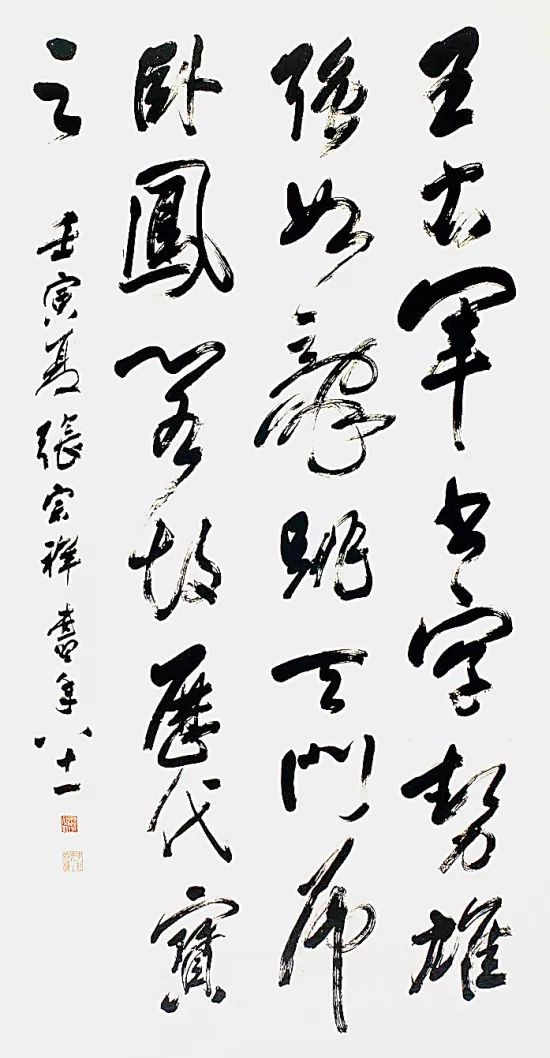 王右軍書字勢雄
強如龍跳天門虎
卧鳳閣故歷代寶
之 壬寅夏張宗祥書年八十一